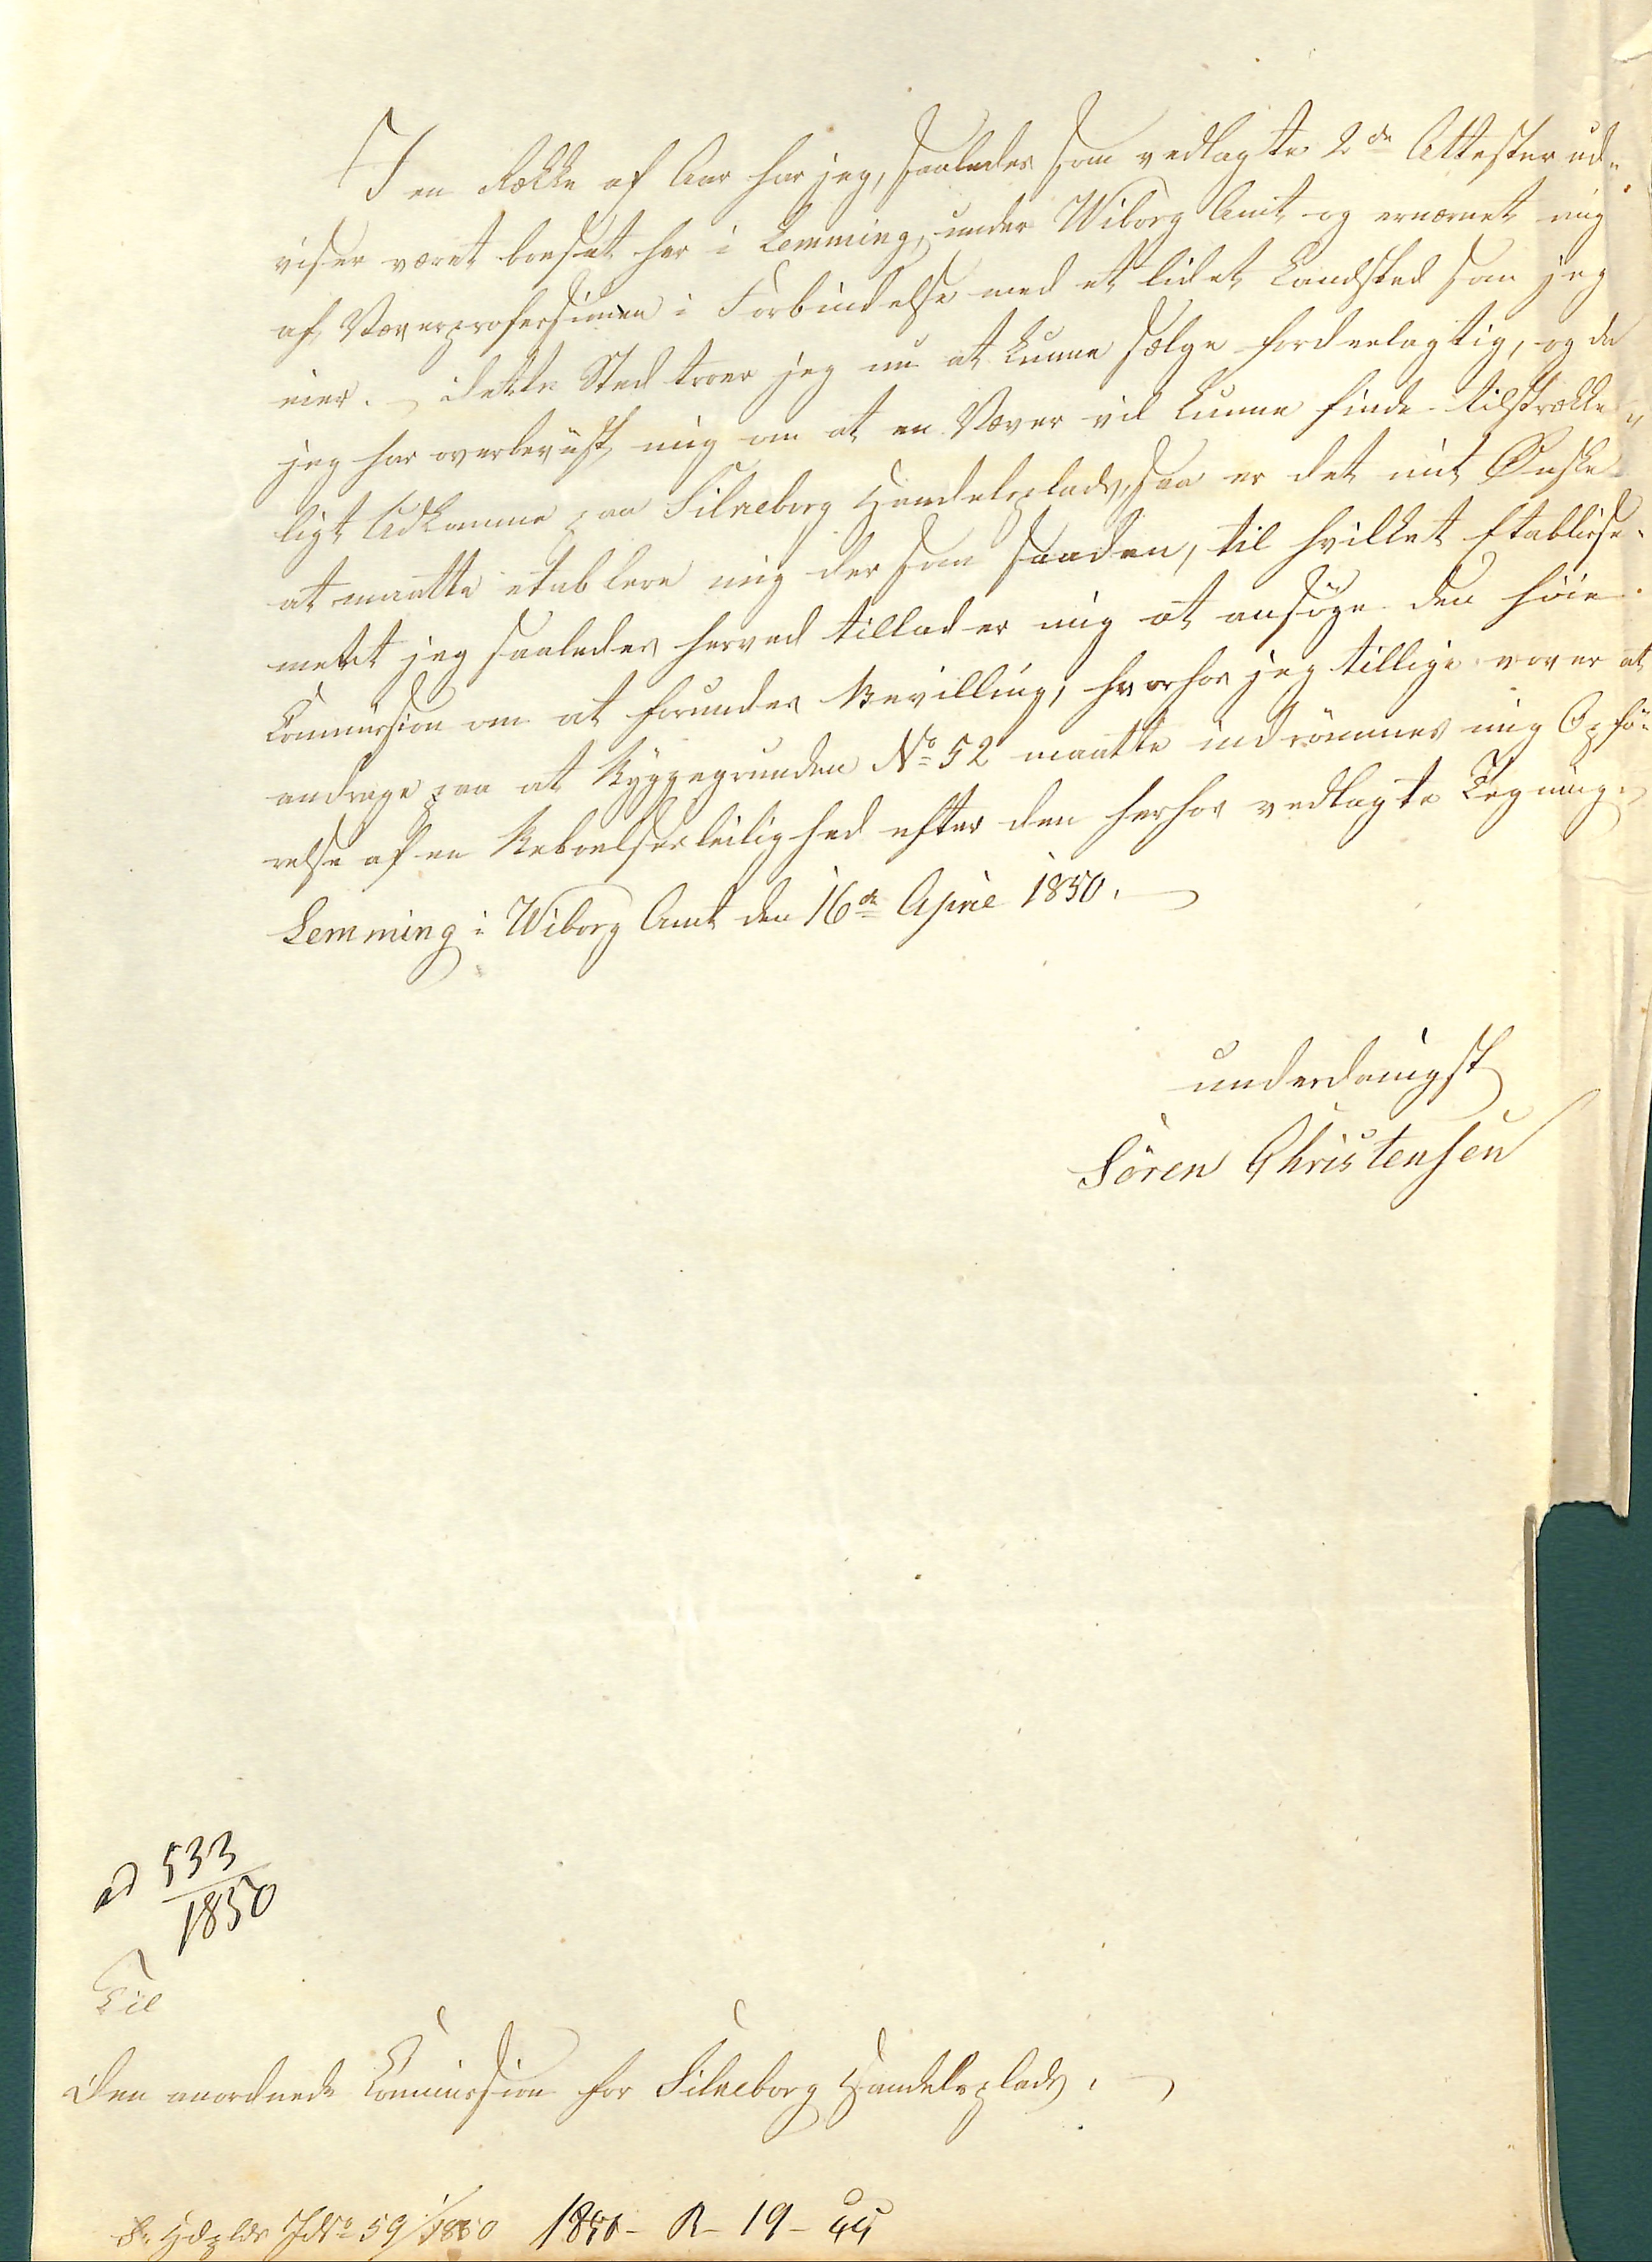 I en Række af Aar har jeg, saaledes som vedlagte 2de Attester ud-
viser været bosat her i Lemming, under Wiborg Amt og ernæret mig
af Væverprofessionen i Forbindelse med et lidet Landsted som jeg
eier. Dette Sted troer jeg nu at kunne sælge fordeelagtig, og da
jeg har overbeviist mig om at en Væver vil kunne finde tilstrække-
ligt Udkomme paa Silkeborg Handelsplads, saa er det mit Ønske
at maatte etablere mig der som saadan, til hvilket Etablisse-
ment jeg saaledes herved tillader mig at ansøge den høie
Commission om at forundes Bevilling, hvorhos jeg tillige vover at
andrage paa at Byggegrunden No 52 maatte indrömmes mig Opfö-
relse af en Beboelsesleilighed efter den herhos vedlagte Tegning.
Lemming i Wiborg Amt den 16de April 1850.
underdanigst
Sören Christensen
ad 533
1850
Til
Den anordnede Commission for Silkeborg Handelsplads.
S. Hdplds JNo 59/1850 1850 - R - 19 - 44